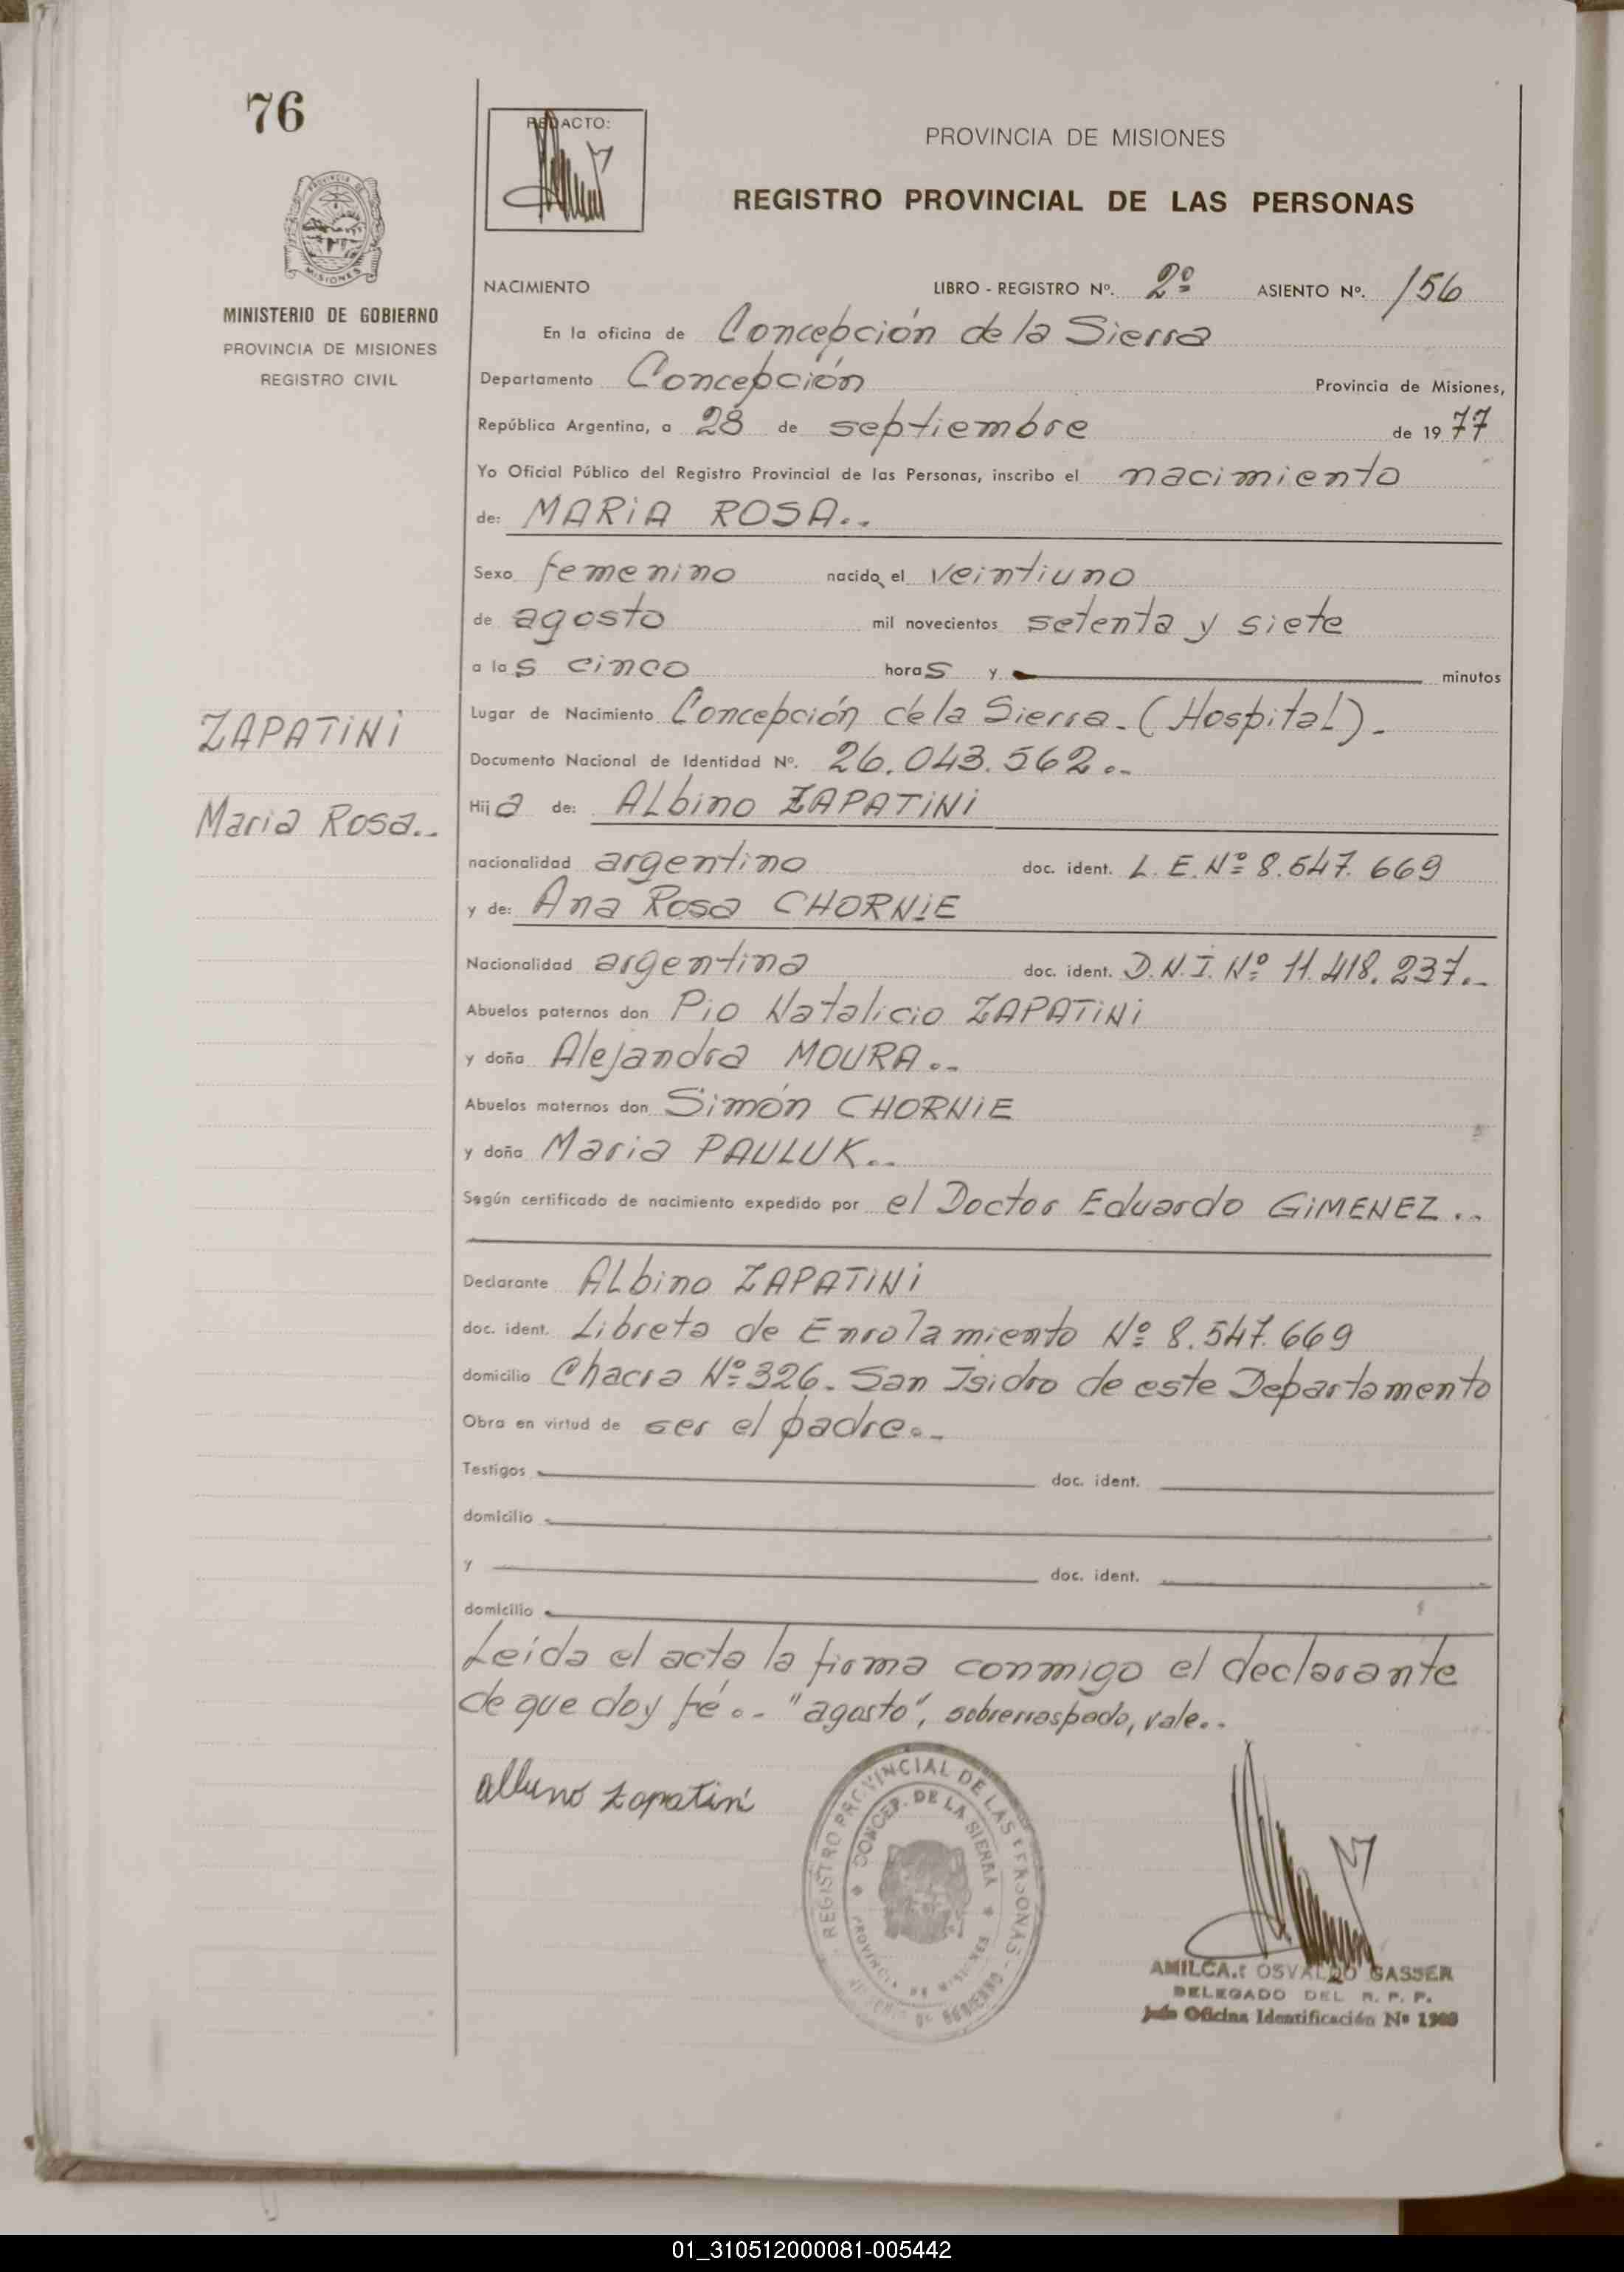 76
REDACTO:
PROVINCIA DE MISIONES
REGISTRO PROVINCIAL DE LAS PERSONAS
MINISTERIO DE GOBIERNO
PROVINCIA DE MISIONES
REGISTRO CIVIL
NACIMIENTO LIBRO - REGISTRO Nº. 2º ASIENTO Nº. 156
En la oficina de Concepción de la Sierra
Departamento Concepción Provincia de Misiones,
República Argentina, a 28 de septiembre de 1977
Yo Oficial Público del Registro Provincial de las Personas, inscribo el nacimiento
de: MARIA ROSA..
Sexo femenino nacido el veintiuno
de agosto mil novecientos setenta y siete
a las cinco horas y minutos
ZAPATINI
Maria Rosa..
Lugar de Nacimiento Concepción de la Sierra.(Hospital).
Documento Nacional de Identidad Nº. 26.043.562.-
Hija de: ALbino ZAPATINI
nacionalidad argentino doc. ident. L.E.Nº 8.547.669
y de: Ana Rosa CHORNIE
Nacionalidad argentina doc. ident. D.N.I. Nº 11.418.237.-
Abuelos paternos don Pio Natalicio ZAPATINI
y doña Alejandra MOURA.-
Abuelos maternos don Simón CHORNIE
y doña Maria PAULUK..
Según certificado de nacimiento expedido por el Doctor Eduardo GIMENEZ..
Declarante ALbino ZAPATINI
doc. ident. Libreta de Enrolamiento Nº 8.547.669
domicilio Chacra Nº 326. San Isidro de este Departamento
Obra en virtud de ser el padre.-
Testigos doc. ident.
domicilio
y doc. ident.
domicilio
Leida el acta la firma conmigo el declarante
de que doy fé.- "agosto", sobrerraspado, vale..
albino zapatini
REGISTRO PROVINCIAL DE LAS PERSONAS
CONCEP. DE LA SIERRA
PROVINCIA DE MISIONES
AMILCAR OSVALDO GASSER
DELEGADO DEL R. P. P.
Jefe Oficina Identificación Nº
01_310512000081-005442